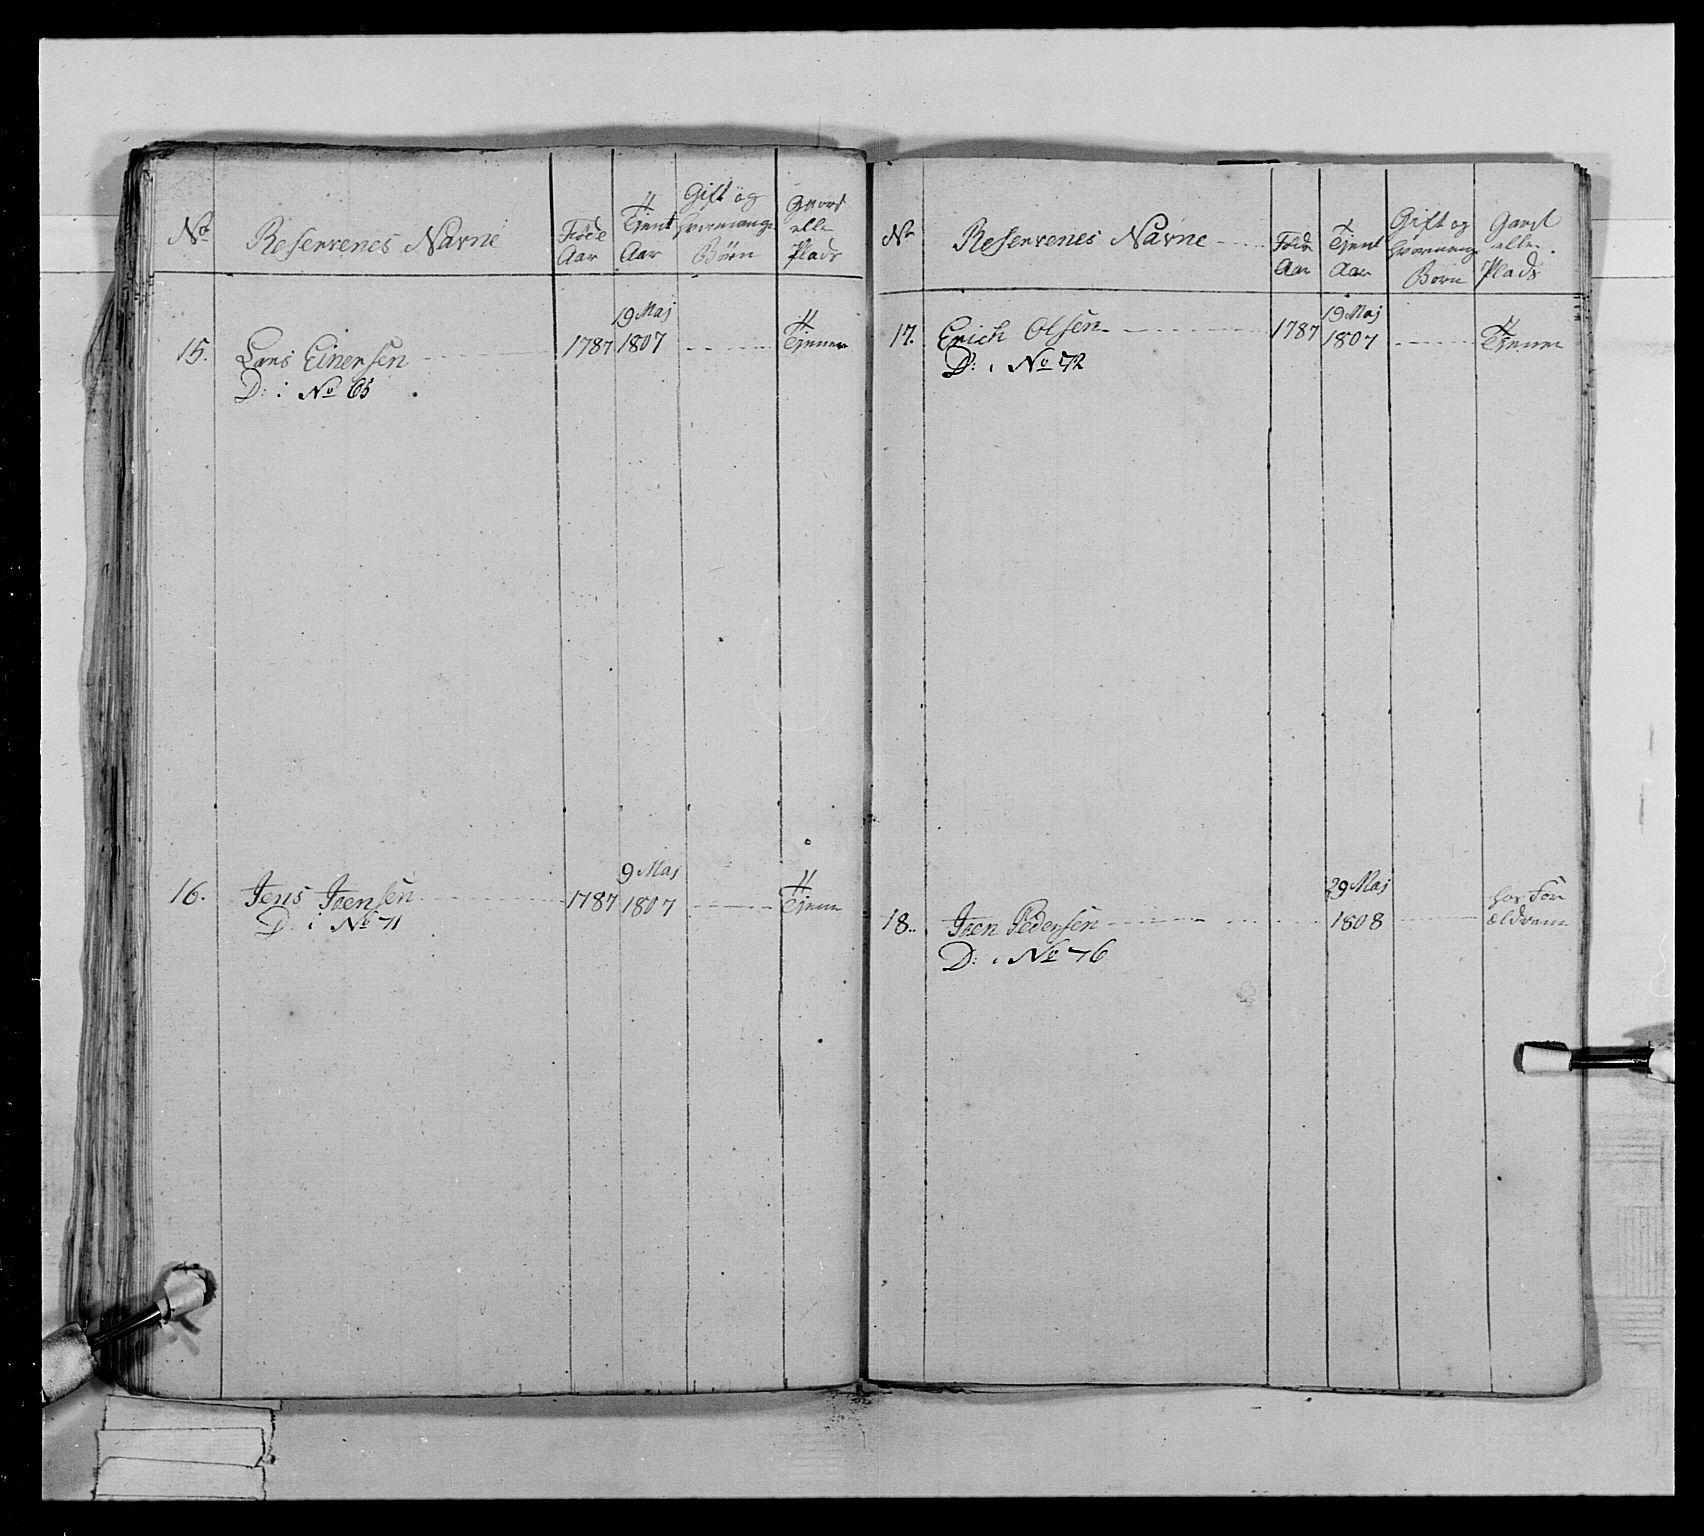 No
Reservenes Navne
Føde
Aar
Tjent
Aar
Gift og
hvormange
Børn
Gaard
elle
Plads
15.
Lars Einersen
D: i No 65
1787
19 Maj
1807
Tjener
16.
Jens Joensen
D: i No 71
1787
9 Maj
1807
Tjener
No
Reservenes Navne
Føde
Aar
Tjent
Aar
Gift og
hvormang
Børn
Gaard
elle.
Plads
17.
Erich Olsen
D: i No 72
1787
19 Maj
1807
Tjener
18.
Joen Pedersen
D: i No 76
29 Maj
1808
hos For
ældrene